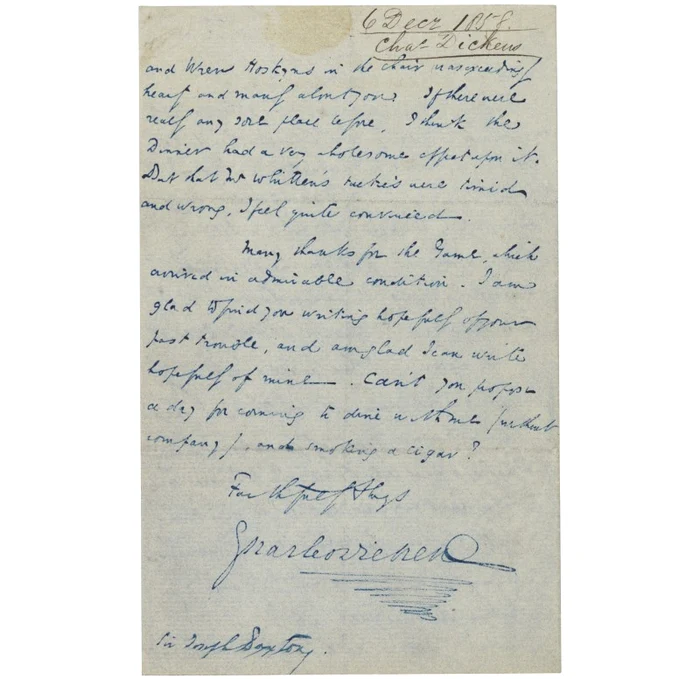 6 Decr 1858.
Chas Dickens
and Wren Hoskyns in the chair was exceedingly
hearty and manly about you. If there were
really any sore place before, I think the
Dinner had a very wholesome effect upon it.
But that Mr Whitten's tactics were timid
and wrong, I feel quite convinced.
Many thanks for the Game, which
arrived in admirable condition. I am
glad to find you writing hopefully of your
past trouble, and am glad I can write
hopefully of mine. Can't you propose
a day for coming to dine with me (without
company), and smoking a cigar?
Faithfully Yours
Charles Dickens
Sir Joseph Paxton.